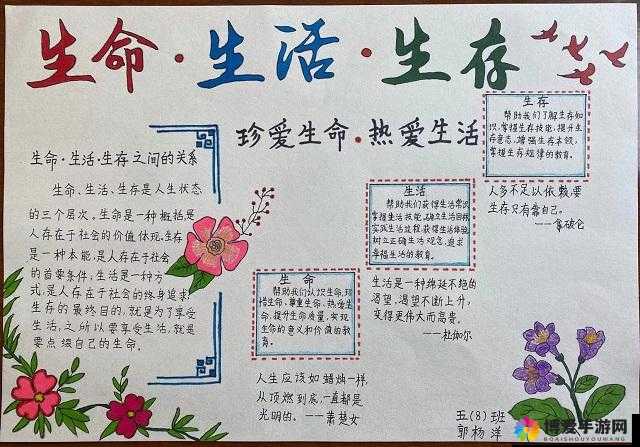 生命·生活·生存
珍爱生命·热爱生活
生命·生活·生存之间的关系
生命、生活、生存是人生状态
的三个层次。生命是一种概括,是
人存在于社会的价值体现。生存
是一种本能,是人存在于社会
的首要条件;生活是一种方
式,是人存在于社会的终身追求。
生存的最终目的,就是为了享受
生活,之所以需享受生活,就是
要点缀自己的生命。
生命
帮助我们认识生命、珍
惜生命、尊重生命、热爱生
命,提升生命质量,实现
生命的意义和价值的教
育。
人生应该如蜡烛一样,
从顶燃到底,一直都是
光明的。——萧楚女
生活
帮助我们获得生活常识
掌握生活技能,确立生活目标
实践生活过程,获得生活体验
树立正确生活观念,追求
幸福生活的教育。
生活是一种绵延不绝的
渴望,渴望不断上升,
变得更伟大而高贵。
——杜伽尔
生存
帮助我们了解生存知
识,掌握生存技能,提升生
存意志,增强生存本领,
掌握生存规律的教育。
人多不足以依赖,要
生存只有靠自己。
——拿破仑
五(8)班
郭杨洋
博爱手游网
BOAISHOUYOUWANG